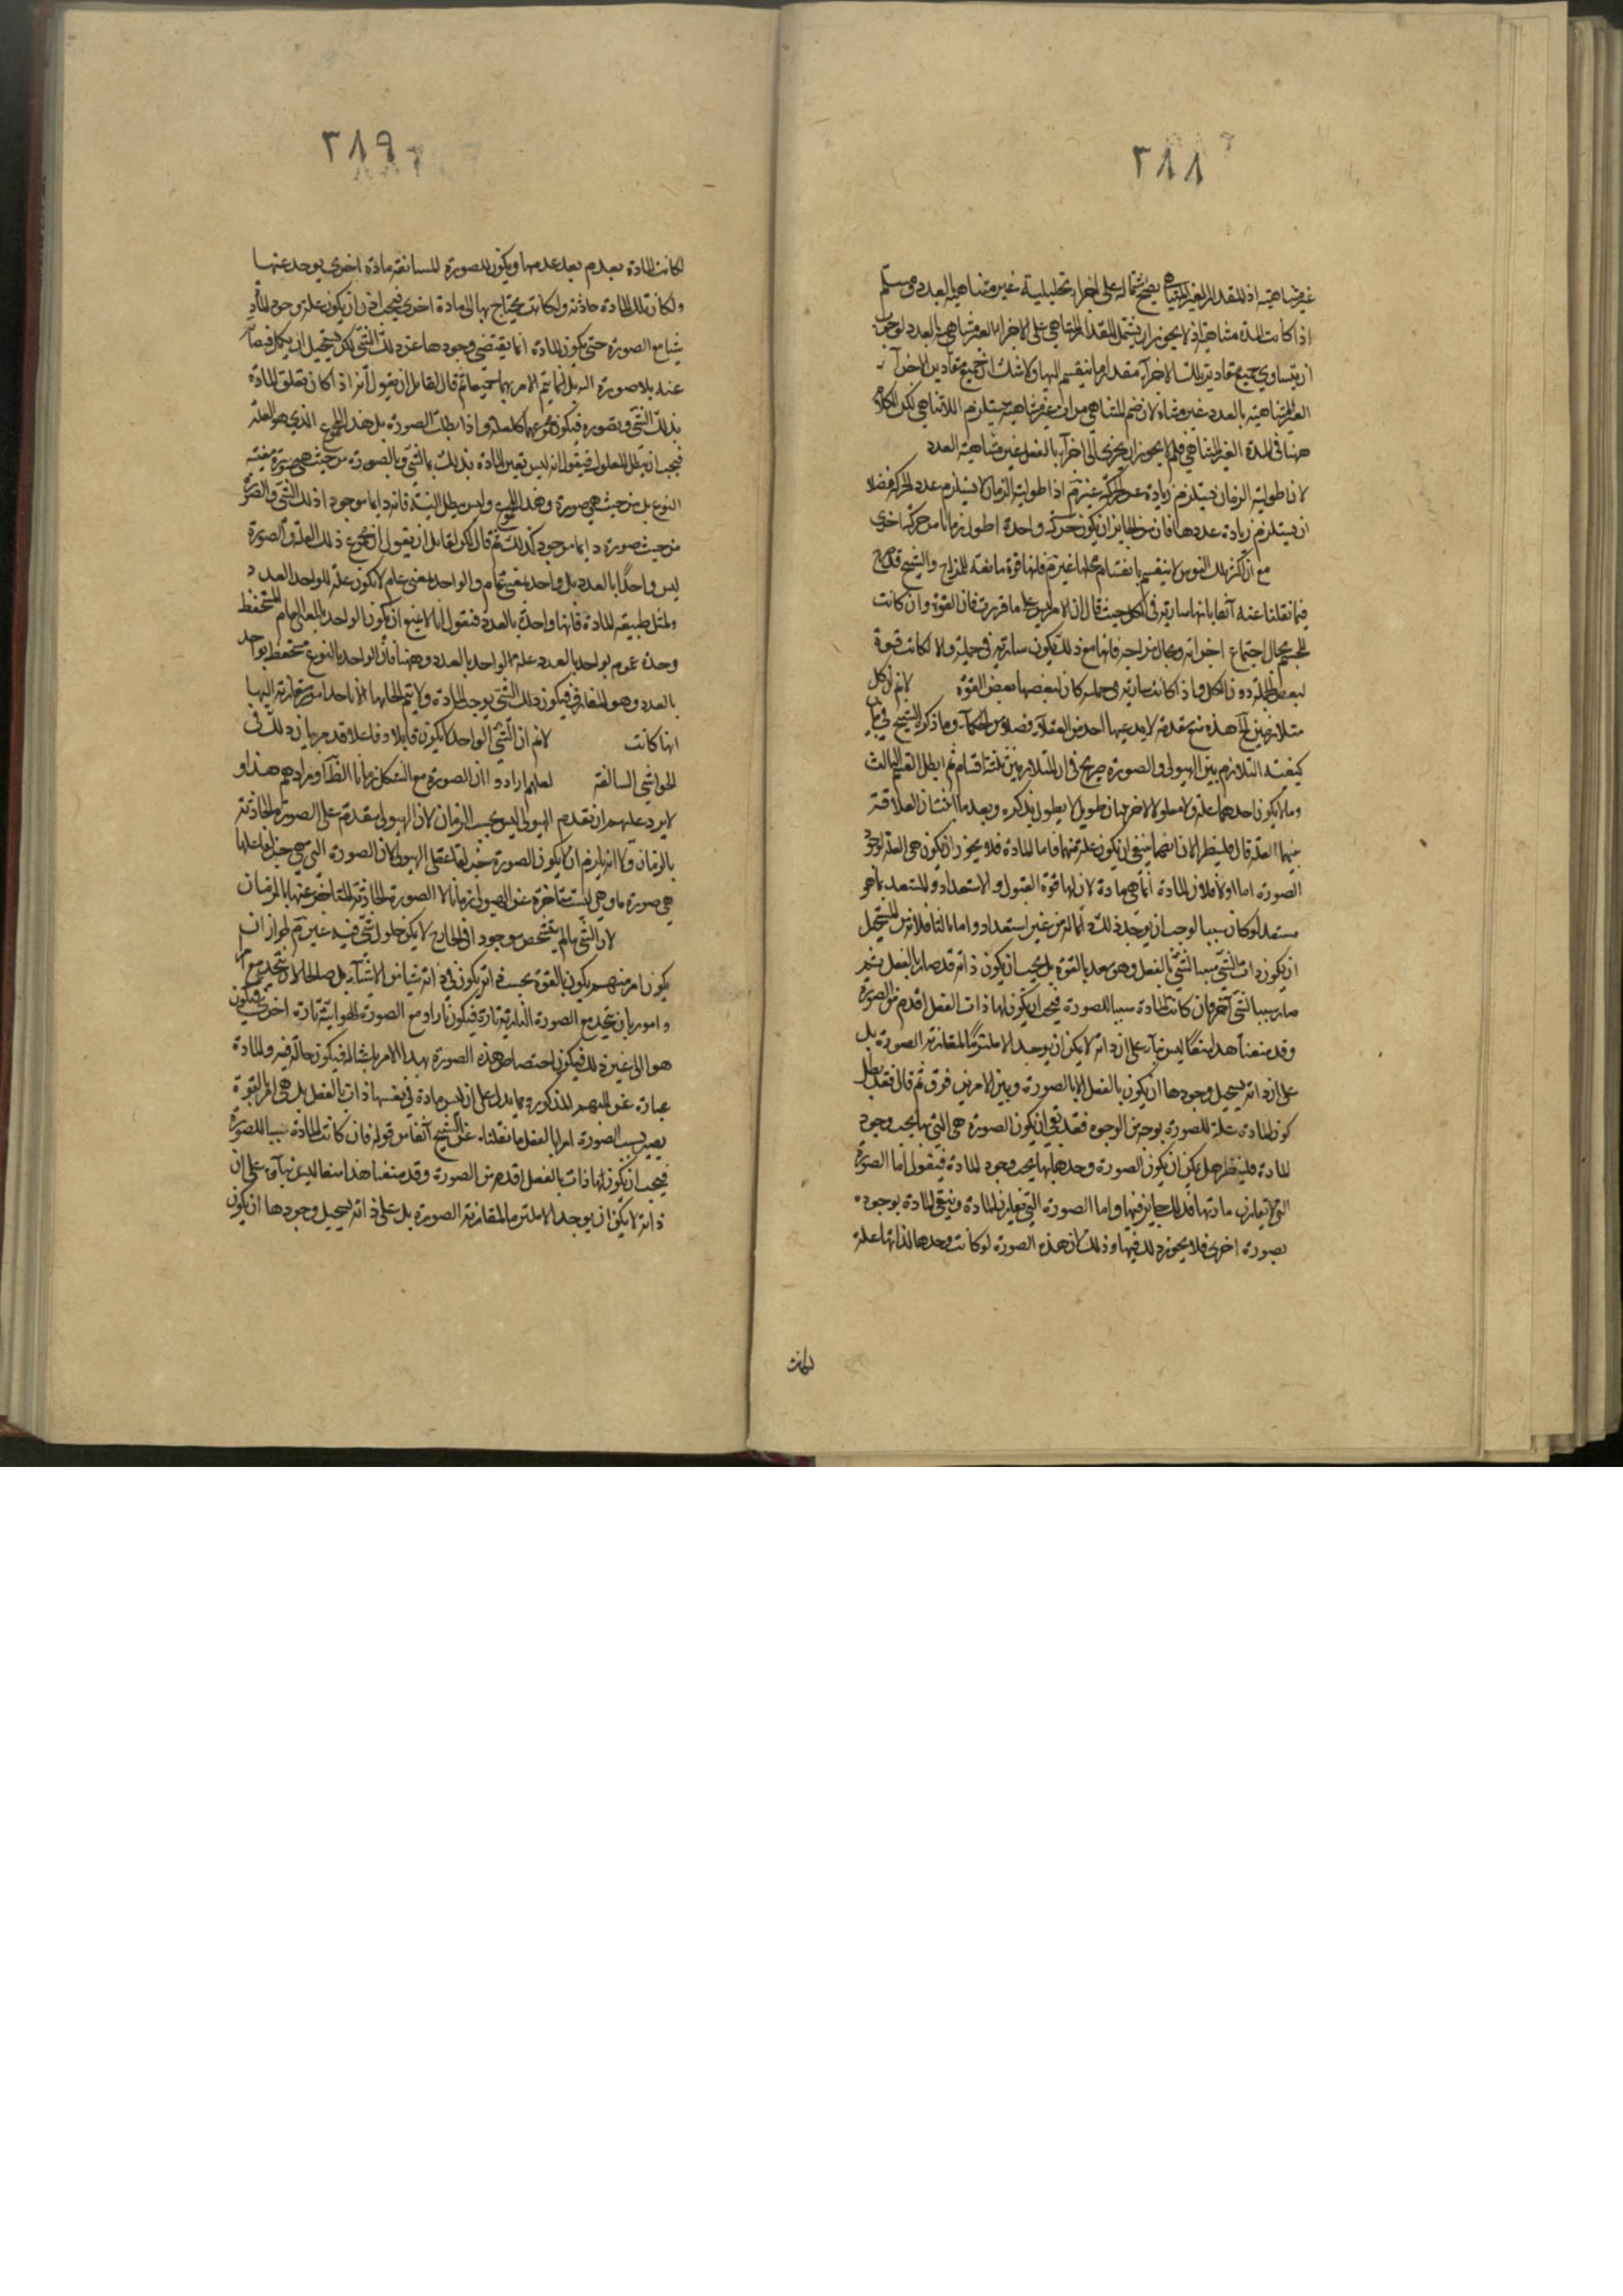 ٢٨٨
غير متناهية اذ المقدار الغير المتناهي يصح اشتماله على اجزاء تحليلية غير متناهية بالعدد ومسلم
اذا كانت المدة متناهية اذ لا يجوز ان يشتمل المقدار المتناهي على الاجزاء الغير متناهي بالعدد لوجوب
ان يتساوي جميع مقادير تلك الاجزآء مقدار ما ينقسم اليها ولا شك ان جميع مقادير الاجزآء
الغير المتناهية بالعدد غير متناه لان ضم المتناهي مرات غير متناهية يستلزم اللاتناهي لكن الكلام
ههنا في المدة الغير المتناهي فلم لا يجوز ان يتجزى الى اجزآء بالفعل غير متناهية العدد
لان اطولية الزمان يستلزم زيادة عدد الحركة غير تم اذا اطولية الزمان لا يستلزم عدد الحركة فضلا
ان يستلزم زيادة عددها فان من الجايز ان يكون حركة واحدة اطول زمانا من حركة اخرى
مع ان اكثر تلك النفوس لا ينقسم بانقسام محلها غير تم فلها قوة مانعة للمزاج والشيخ قد صرح
فيما نقلنا عنه آنفا بانها سارية في الكل حيث قال ان الامر ليس على ما قررت فان القوة وان كانت
للجسم بحال اجتماع اجزائه وبحال مزاجه فانها مع ذلك يكون سارية في جملته والا لكانت قوة
لبعض الجملة دون الكل واذا كانت سارية في جملته كان لبعضها بعض القوة لانم ان كل
متلازمين الخ هذه منع مقدمة لا يدعيها احد من العقلآء فضلا من الحكمآء وما ذكره الشيخ في بيان
كيفية التلازم بين الهيولى والصورة صريح في ان المتلازمين ثلثة اقسام ثم ابطل القسم الثالث
وما لا يكون احدهما علة ولا معلولا للاخر ببيان طويل لا يطول بذكره وبعد ما اثبت ان العلاقة
بينهما العلية قال فلينظر الان ايهما ينبغي ان يكون علة منهما فاما المادة فلا يجوز ان يكون هي العلة لوجود
الصورة اما اولا فلان المادة انما هي مادة لان لها قوة القبول والاستعداد والمستعد بما هو
مستعد لو كان سببا لوجب ان يوجد ذلك دائما له من غير استعداد واما ثانيا فلانه من المستحيل
ان يكون ذات الشئ سببا لشئ بالفعل وهو بعد بالقوة بل يجب ان يكون ذاته قد صار بالفعل ثم
صار سببا لشئ آخر فان كانت المادة سببا للصورة فيجب ان يكون لها ذات بالفعل اقدم من الصورة
وقد منعنا هذا منعا ليس بناءه على ان ذاته لا يمكن ان يوجد الا ملتزما لمقارنة الصورة بل
على ان ذاته يستحيل وجودها ان يكون بالفعل الا بالصورة وبين الامرين فرق ثم قال فقد بطل
كون المادة علة للصورة بوجه من الوجوه فقد بقي ان يكون الصورة هي التي بها يجب وجود
المادة فلينظر هل يمكن ان يكون الصورة وحدها بها يجب وجود المادة فيقول اما الصورة
التي لا يفارق مادتها فذلك جايز فيها واما الصورة التي تفارق المادة ويبقى المادة بوجوده
بصورة اخرى فلا يجوز ذلك فيها وذلك لان هذه الصورة لو كانت وحدها لذاتها علة
لكانت
٢٨٩
لكانت المادة يعدم بعد عدمها ويكون للصورة المستانفة مادة اخرى يوجد عنها
ولكان تلك المادة حادثة ولكانت يحتاج بها الى مادة اخرى فيجب اذن ان يكون علة وجود المادة
شيئا مع الصورة حتى يكون المادة انما يقتضي وجودها عن ذلك الشئ لكن يستحيل ان يكمل فيضانه
عنه بلا صورة البتة بل انما يتم الامر بهما جميعا ثم قال لقايل ان يقول انه اذا كان تعلق المادة
بذلك الشئ وبصورة فيكون مجموعهما كالعلة واذا بطلت الصورة بطل هذا المجموع الذي هو العلة
فيجب ان يبطل المعلول فيقول انه ليس تعين المادة بذلك بالشئ وبالصورة من حيث هي صورة معينة
النوع بل من حيث هي صورة وهذا المجموع وليس يبطل البتة فانه دايما موجود اذ ذلك الشئ والصورة
من حيث صورة دايما موجود كذلك ثم قال لكن لقايل ان يقول ان مجموع ذلك العلة والصورة
ليس واحدا بالعدد بل واحد بمعنى عام والواحد بمعنى عام لا يكون علة للواحد بالعدد
ولمثل طبيعة المادة فانها واحدة بالعدد فنقول انا لا نمنع ان يكون الواحد بالمعنى العام المستحفظ
وحدة عموم بواحد بالعدد علة للواحد بالعدد وههنا فان الواحد بالنوع مستحفظ بواحد
بالعدد وهو المفارق فيكون ذلك الشئ يوجب المادة ولا يتم ايجابها الا باحد امور يقارنه ايها
ايها كانت لانم ان الشئ الواحد لا يكون قابلا وفاعلا قد مر بيان ذلك في
الحواشي السالفة لعلهم ارادوا ان الصورة مع الشكل زمانا الظ ان مرادهم هذا و
لا يرد عليهم ان تقدم الهيولى ليس بحسب الزمان لان الهيولى متقدم على الصورة الحادثة
بالزمان ولا انه يلزم ان لا يكون الصورة جزءا لعلة الهيولى لان الصورة التي هي جزء لفاعلها
هي صورة ما وهي ليست متاخرة عن الهيولى زمانا الا الصورة الحادثة المتاخر عنها بالزمان
لان الشئ ما لم يتشخص موجودا في الخارج لا يمكن حلول شئ فيه غير تم لجواز ان
يكون امر مبهم يكون بالقوة بحسب ذاته يكون في ذاته شيئا من الاشيآء بل صالحا لان يتحد مع امر
وامور بان يتحد مع الصورة النارية تارة فيكون نارا ومع الصورة الهوائية تارة اخرى فيكون
هواء الى غير ذلك فيكون اختصاص هذه الصورة بهذا الامر باشتماله فيكون حالة فيه والمادة
عبارة عن المبهم المذكور ومما يدل على ان ليس مادة في نفسها ذات بالفعل بل هي امر بالقوة
يصير بسبب الصورة امرا بالفعل ما نقلناه عن الشيخ آنفا من قوله فان كانت المادة سببا للصورة
فيجب ان يكون لها ذات بالفعل اقدم من الصورة وقد منعنا هذا منعا ليس بناءه على ان
ذاته لا يمكن ان يوجد الا ملتزما لمقارنة الصورة بل على ذاته يستحيل وجودها ان يكون